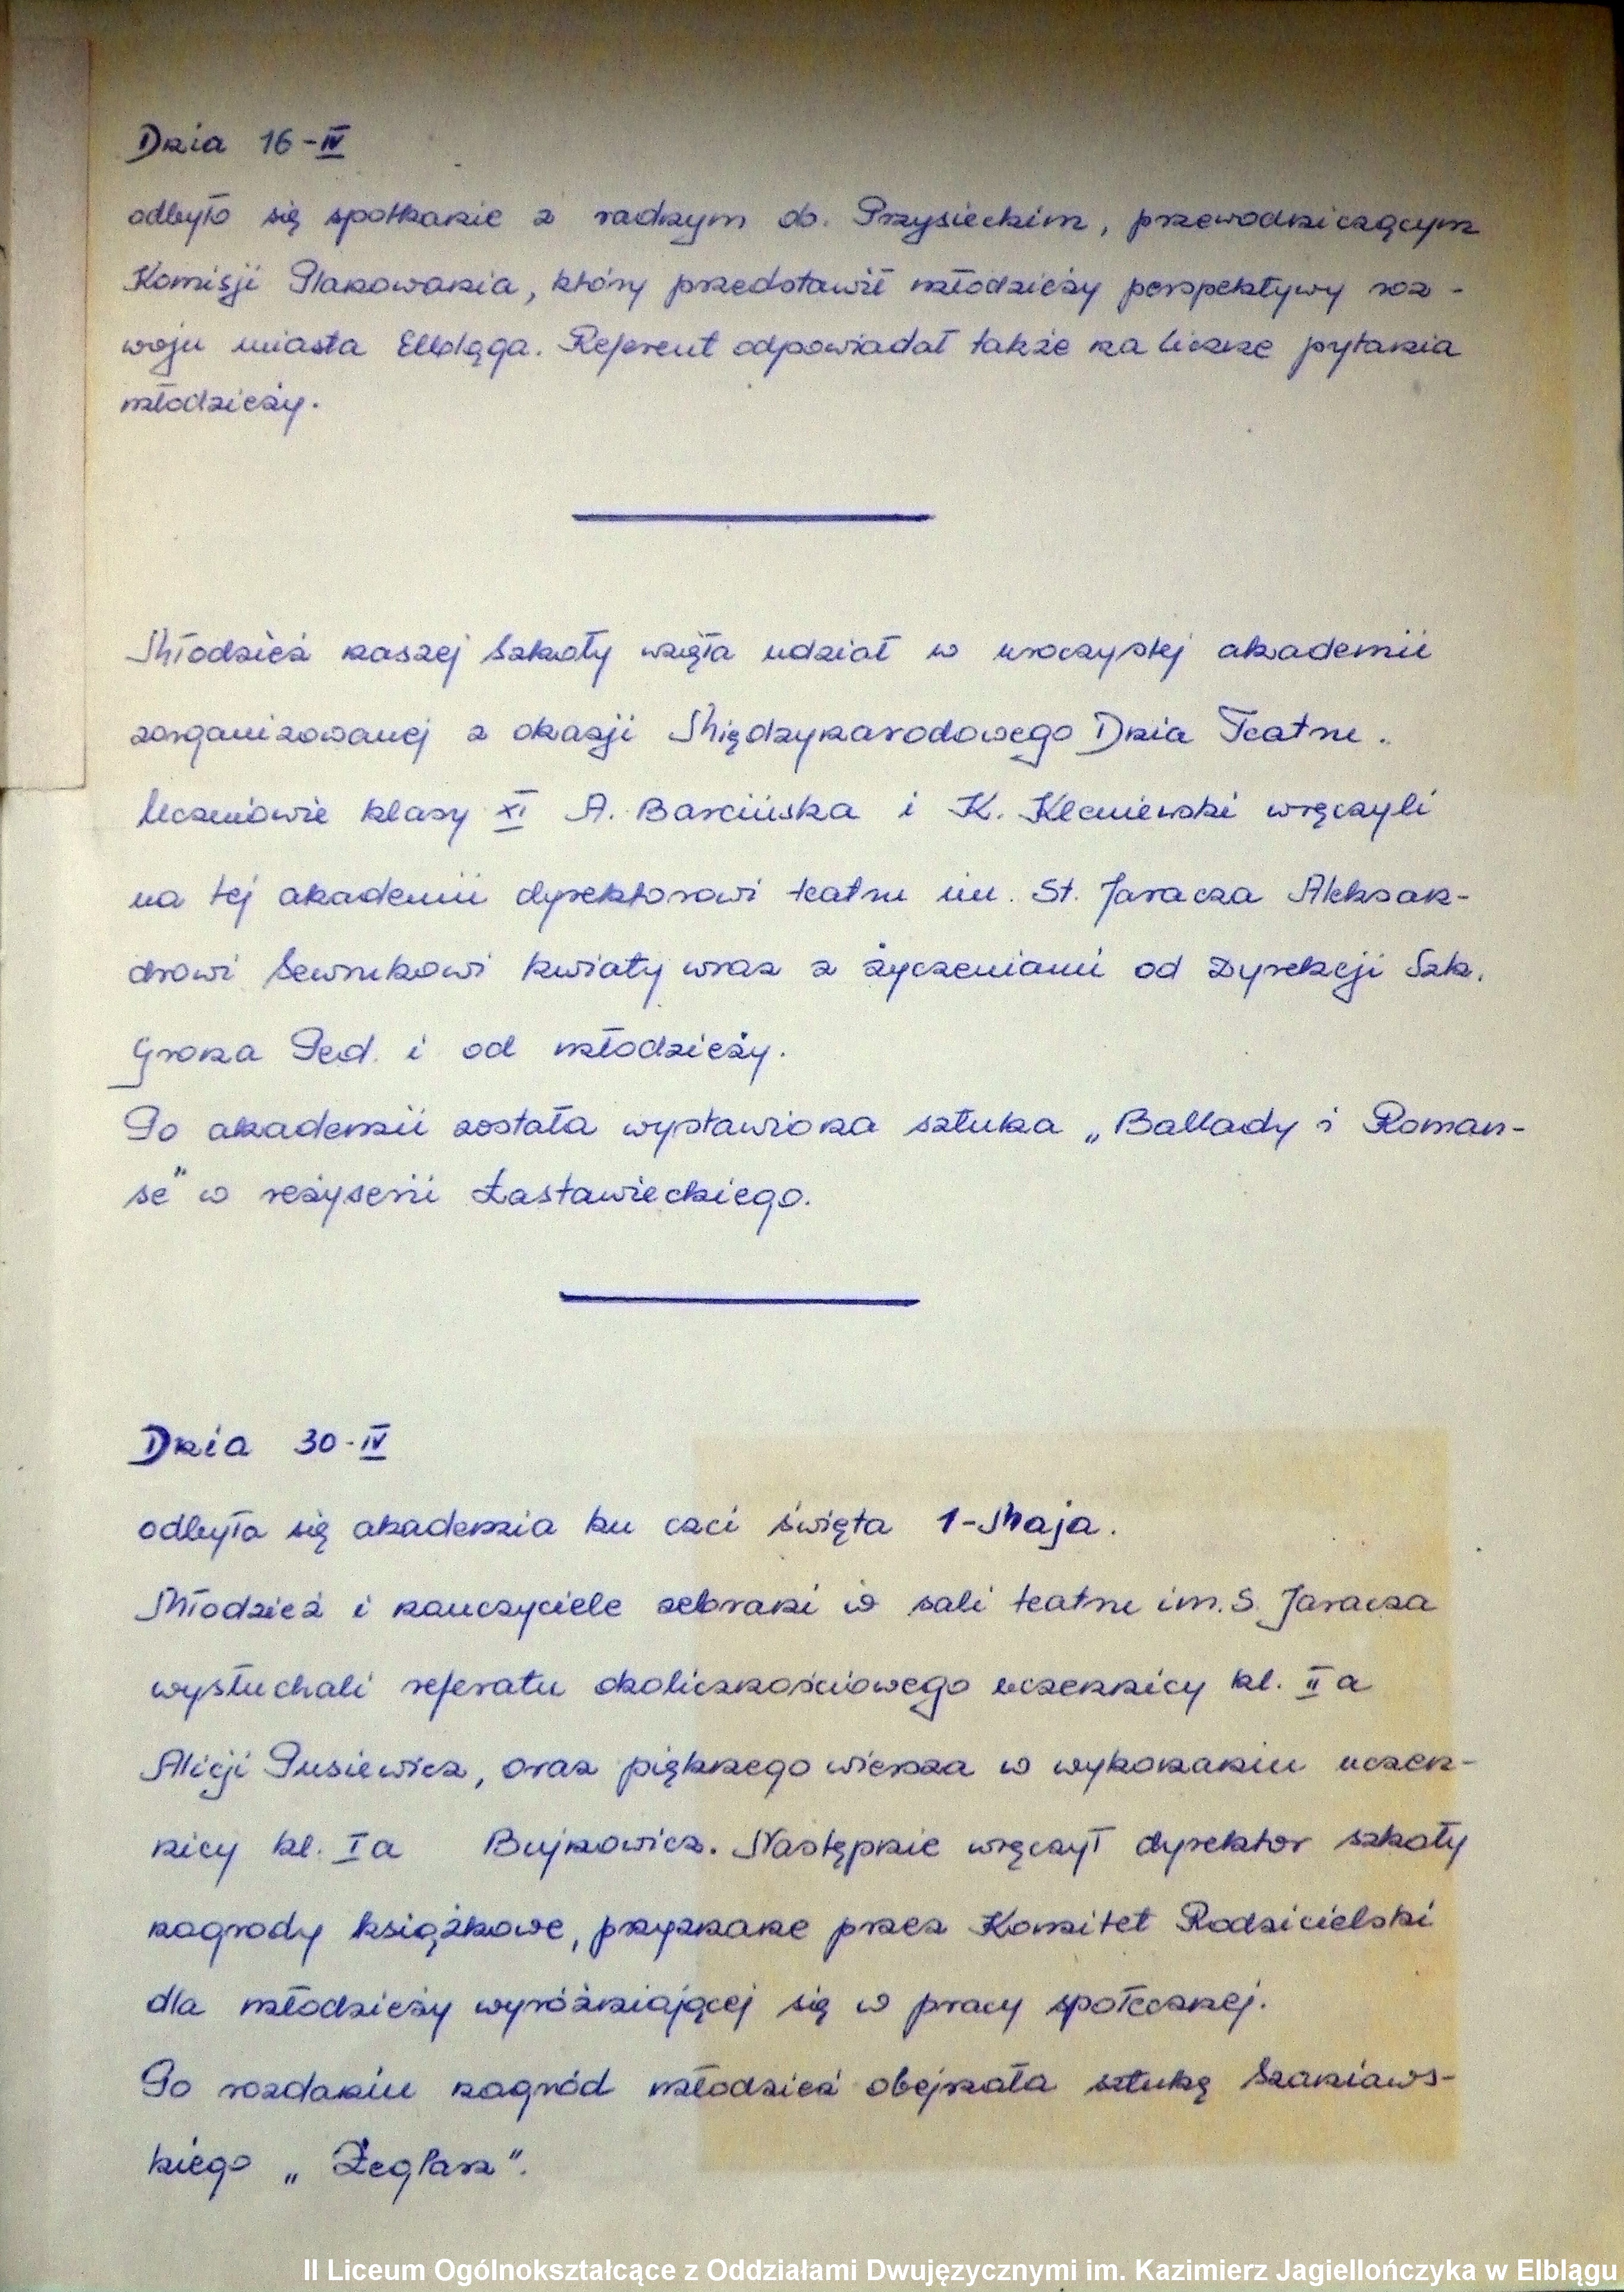 Dnia 16-IV
odbyło się spotkanie z radnym ob. Przysieckim, przewodniczącym
Komisji Planowania, który przedstawił młodzieży perspektywy roz-
woju miasta Elbląga. Referent odpowiadał także na liczne pytania
młodzieży.
Młodzież naszej Szkoły wzięła udział w uroczystej akademii
zorganizowanej z okazji Międzynarodowego Dnia Teatru.
Uczniowie klasy XI A. Barcińska i K. Kleczniewski wręczyli
na tej akademii dyrektorowi teatru im. St. Jaracza Aleksan-
drowi Sewrukowi kwiaty wraz z życzeniami od Dyrekcji Szk.
Grona Ped. i od młodzieży.
Po akademii została wystawiona sztuka „Ballady i Roman-
se" w reżyserii Łastawieckiego.
Dnia 30-IV
odbyła się akademia ku czci święta 1-Maja.
Młodzież i nauczyciele zebrani w sali teatru im. S. Jaracza
wysłuchali referatu okolicznościowego uczennicy kl. II a
Alicji Pusiewicz, oraz pięknego wiersza w wykonaniu uczen-
nicy kl. I a Bujnowicz. Następnie wręczył dyrektor szkoły
nagrody książkowe, przyznane przez Komitet Rodzicielski
dla młodzieży wyróżniającej się w pracy społecznej.
Po rozdaniu nagród młodzież obejrzała sztukę Szaniaws-
kiego „Żeglarz".
II Liceum Ogólnokształcące z Oddziałami Dwujęzycznymi im. Kazimierz Jagiellończyka w Elblągu